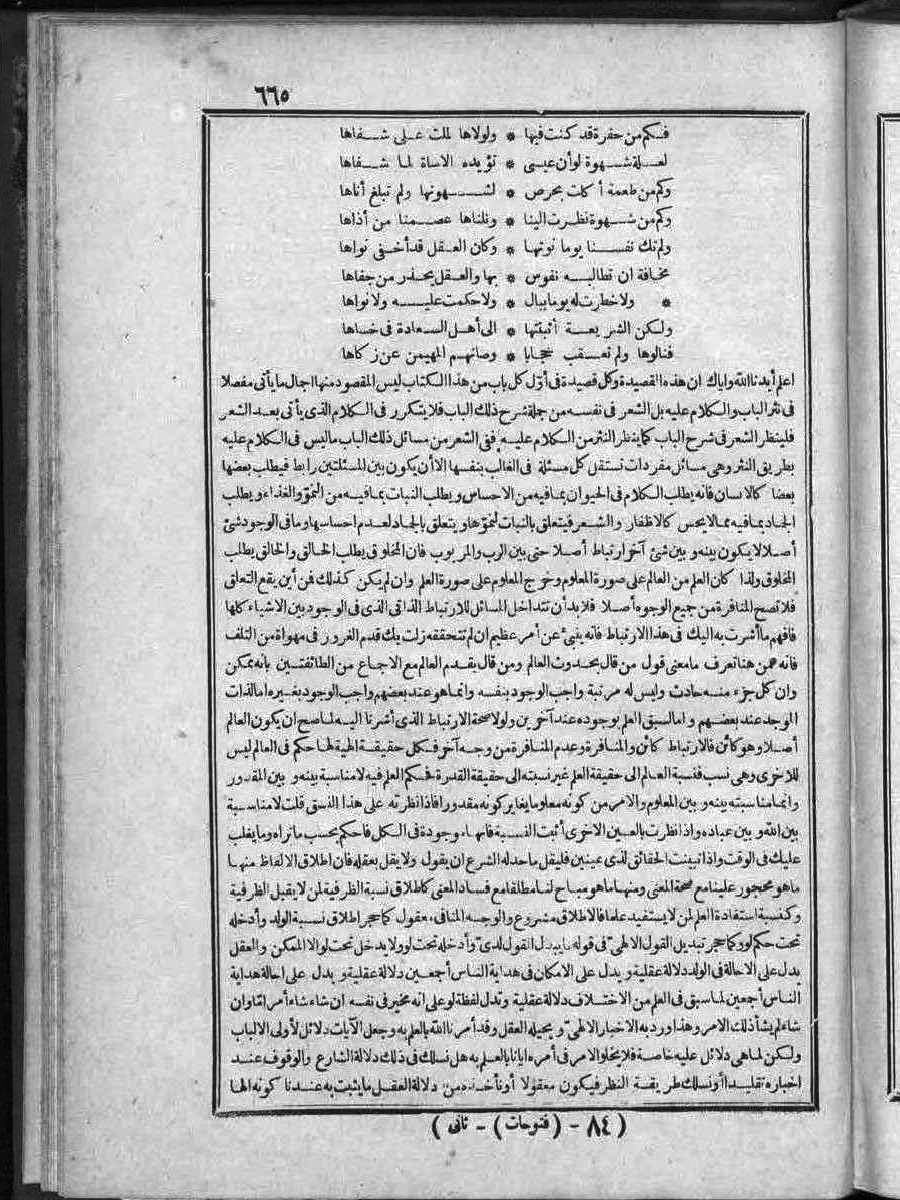 ٦٦٥
فكم من حفرة قد كنت فيها * ولولاها لملت على شفاها
لعلة شهوة لو أن عيسى * تؤيده الاساة لما شفاها
وكم من طعمة أكلت بحرص * لشهوتها ولم تبلغ أناها
وكم من شهوة نظرت الينا * ونلناها عصمنا من أذاها
ولم تك نفسنا يوما نوتها * وكان العقل قد أخفى نواها
مخافة ان تطالبه نفوس * بها والعقل يحذر من جفاها
* ولا خطرت له يوما ببال * ولا حكمت عليه ولا نواها
ولكن الشريعة أثبتتها * الى أهل السعادة فى
فنالوها ولم تعقب حجابا * وصانهم المهيمن عن زكاها
اعلم أيدنا الله واياك ان هذه القصيدة وكل قصيدة فى أوّل كل باب من هذا الكتاب ليس المقصود منها اجمال ما يأتى مفصلا
فى نثر الباب والكلام عليه بل الشعر فى نفسه من جملة شرح ذلك الباب فلا يتكرر فى الكلام الذى يأتى بعد الشعر
فلينظر الشعر فى شرح الباب كما ينظر النثر من الكلام عليه ففى الشعر من مسائل ذلك الباب ما ليس فى الكلام عليه
بطريق النثر وهى مسائل مفردات تستقل كل مسئلة فى الغالب بنفسها الا أن يكون بين المسئلتين رابط فيطلب بعضها
بعضا كالانسان فانه يطلب الكلام فى الحيوان بما فيه من الاحساس ويطلب النبات بما فيه من النموّ والغذاء ويطلب
الجماد بما فيه مما لا يحس كالاظفار والشعر فيتعلق بالنبات لنموّها ويتعلق بالجماد لعدم احساسها وما فى الوجود شئ
أصلا لا يكون بينه وبين شئ آخر ارتباط أصلا حتى بين الرب والمربوب فان المخلوق يطلب الخالق والخالق يطلب
المخلوق ولذا كان العلم من العالم على صورة المعلوم وخرج المعلوم على صورة العلم وان لم يكن كذلك فمن أين يقع التعلق
فلا تصح المنافرة من جميع الوجوه أصلا فلا بد أن تتداخل المسائل للارتباط الذاتى الذى فى الوجود بين الاشياء كلها
فافهم ما أشرت به اليك فى هذا الارتباط فانه ينبئ عن أمر عظيم ان لم تتحققه زلت بك قدم الغرور فى مهواة من التلف
فانه من هنا تعرف ما معنى قول من قال بحدوث العالم ومن قال بقدم العالم مع الاجماع من الطائفتين بانه ممكن
وان كل جزء منه حادث وليس له مرتبة واجب الوجود بنفسه وانما هو عند بعضهم واجب الوجود بغيره اما لذات
الموجد عند بعضهم واما لسبق العلم بوجوده عند آخرين ولولا صحة الارتباط الذى أشرنا اليه لما صح ان يكون العالم
أصلا وهو كائن فالارتباط كائن والمنافرة وعدم المنافرة من وجه آخر فكل حقيقة الهية لها حكم فى العالم ليس
للاخرى وهى نسب فنسبة العالم الى حقيقة العلم غير نسبته الى حقيقة القدرة فحكم العلم فيه لا مناسبة بينه وبين المقدور
وانما مناسبته بينه وبين المعلوم والامر من كونه معلوما يغاير كونه مقدورا فاذا نظرته على هذا النسق قلت لا مناسبة
بين الله وبين عباده واذا نظرت بالعين الاخرى أثبت النسبة فانها موجودة فى الكل فاحكم بحسب ما تراه وما يغلب
عليك فى الوقت واذا تبينت الحقائق لذى عينين فليقل ما حد له الشرع ان يقول ولا يقل بعقله فان اطلاق الالفاظ منها
ما هو محجور علينا مع صحة المعنى ومنها ما هو مباح لنا مطلقا مع فساد المعنى كاطلاق نسبة الظرفية لمن لا يقبل الظرفية
وكنسبة استفادة العلم لمن لا يستفيد علما فالاطلاق مشروع والوجه المنافى معقول كما حجر اطلاق نسبة الولد وأدخله
تحت حكم لو وكما حجر تبديل القول الالهى فى قوله ما يبدل القول لدى وأدخله تحت لو ولا يدخل تحت لو الا الممكن والعقل
يدل على الاحالة فى الولد دلالة عقلية ويدل على الامكان فى هداية الناس أجمعين دلالة عقلية ويدل على احالة هداية
الناس أجمعين لما سبق فى العلم من الاختلاف دلالة عقلية وتدل لفظة لو على انه مخير فى نفسه ان شاء شاء أمرا ما وان
شاء لم يشأ ذلك الامر وهذا ورد به الاخبار الالهى ويحيله العقل وقد أمرنا الله بالعلم به وجعل الآيات دلائل لأولى الالباب
ولكن لما هى دلائل عليه خاصة فلا يخلو الامر فى أمره ايانا بالعلم به هل نسلك فى ذلك دلالة الشارع والوقوف عند
اخباره تقليدا أو نسلك طريقة النظر فيكون معقولا أو نأخذه من دلالة العقل ما يثبت به عندنا كونه الها
(٨٤ - (فتوحات) - ثانى)